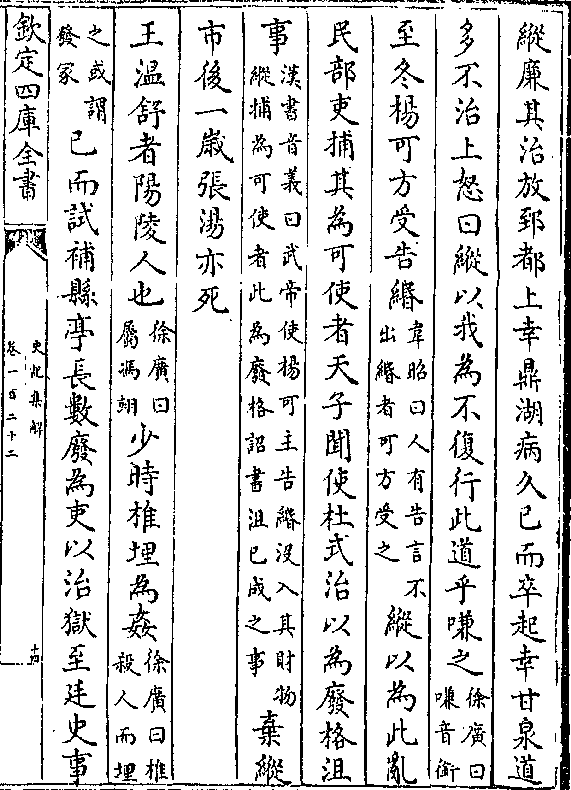 縱廉其治放郅都上幸鼎湖病久已而卒起幸甘泉道
多不治上怒曰縱以我為不復行此道乎嗛之徐廣曰嗛音銜
至冬楊可方受告緡韋昭曰人有告言不出緡者可方受之縱以為此亂
民部吏捕其為可使者天子聞使杜式治以為廢格沮
事漢書音義曰武帝使楊可主告緡沒入其財物縱捕為可使者此為廢格詔書沮已成之事棄縱
市後一歲張湯亦死
王溫舒者陽陵人也徐廣曰屬馮翊少時椎埋為姦徐廣曰椎殺人而埋
之或謂發冢已而試補縣亭長數廢為吏以治獄至廷史事
欽定四庫全書
史記集解
卷一百二十二
十四